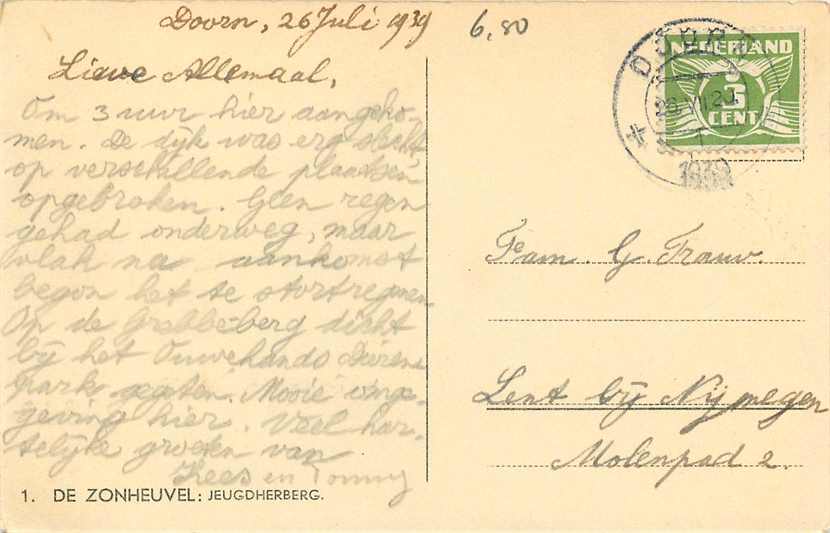 Doorn, 26 Juli 1939
6,80
Lieve Allemaal,
Om 3 uur hier aangeko-
men. De dijk was erg slecht,
op verschillende plaatsen
opgebroken. Geen regen
gehad onderweg, maar
vlak na aankomst
begon het te stortregenen
Op de Grebbeberg dicht
bij het Ouwehands Dieren
park gegeten. Mooie omge-
geving hier. Veel har-
telijke groeten van
Kees en Tonny
1. DE ZONHEUVEL: JEUGDHERBERG.
NEDERLAND
3
CENT
DOORN
1939
Fam. G. Trouw.
Lent bij Nijmegen
Molenpad 2.